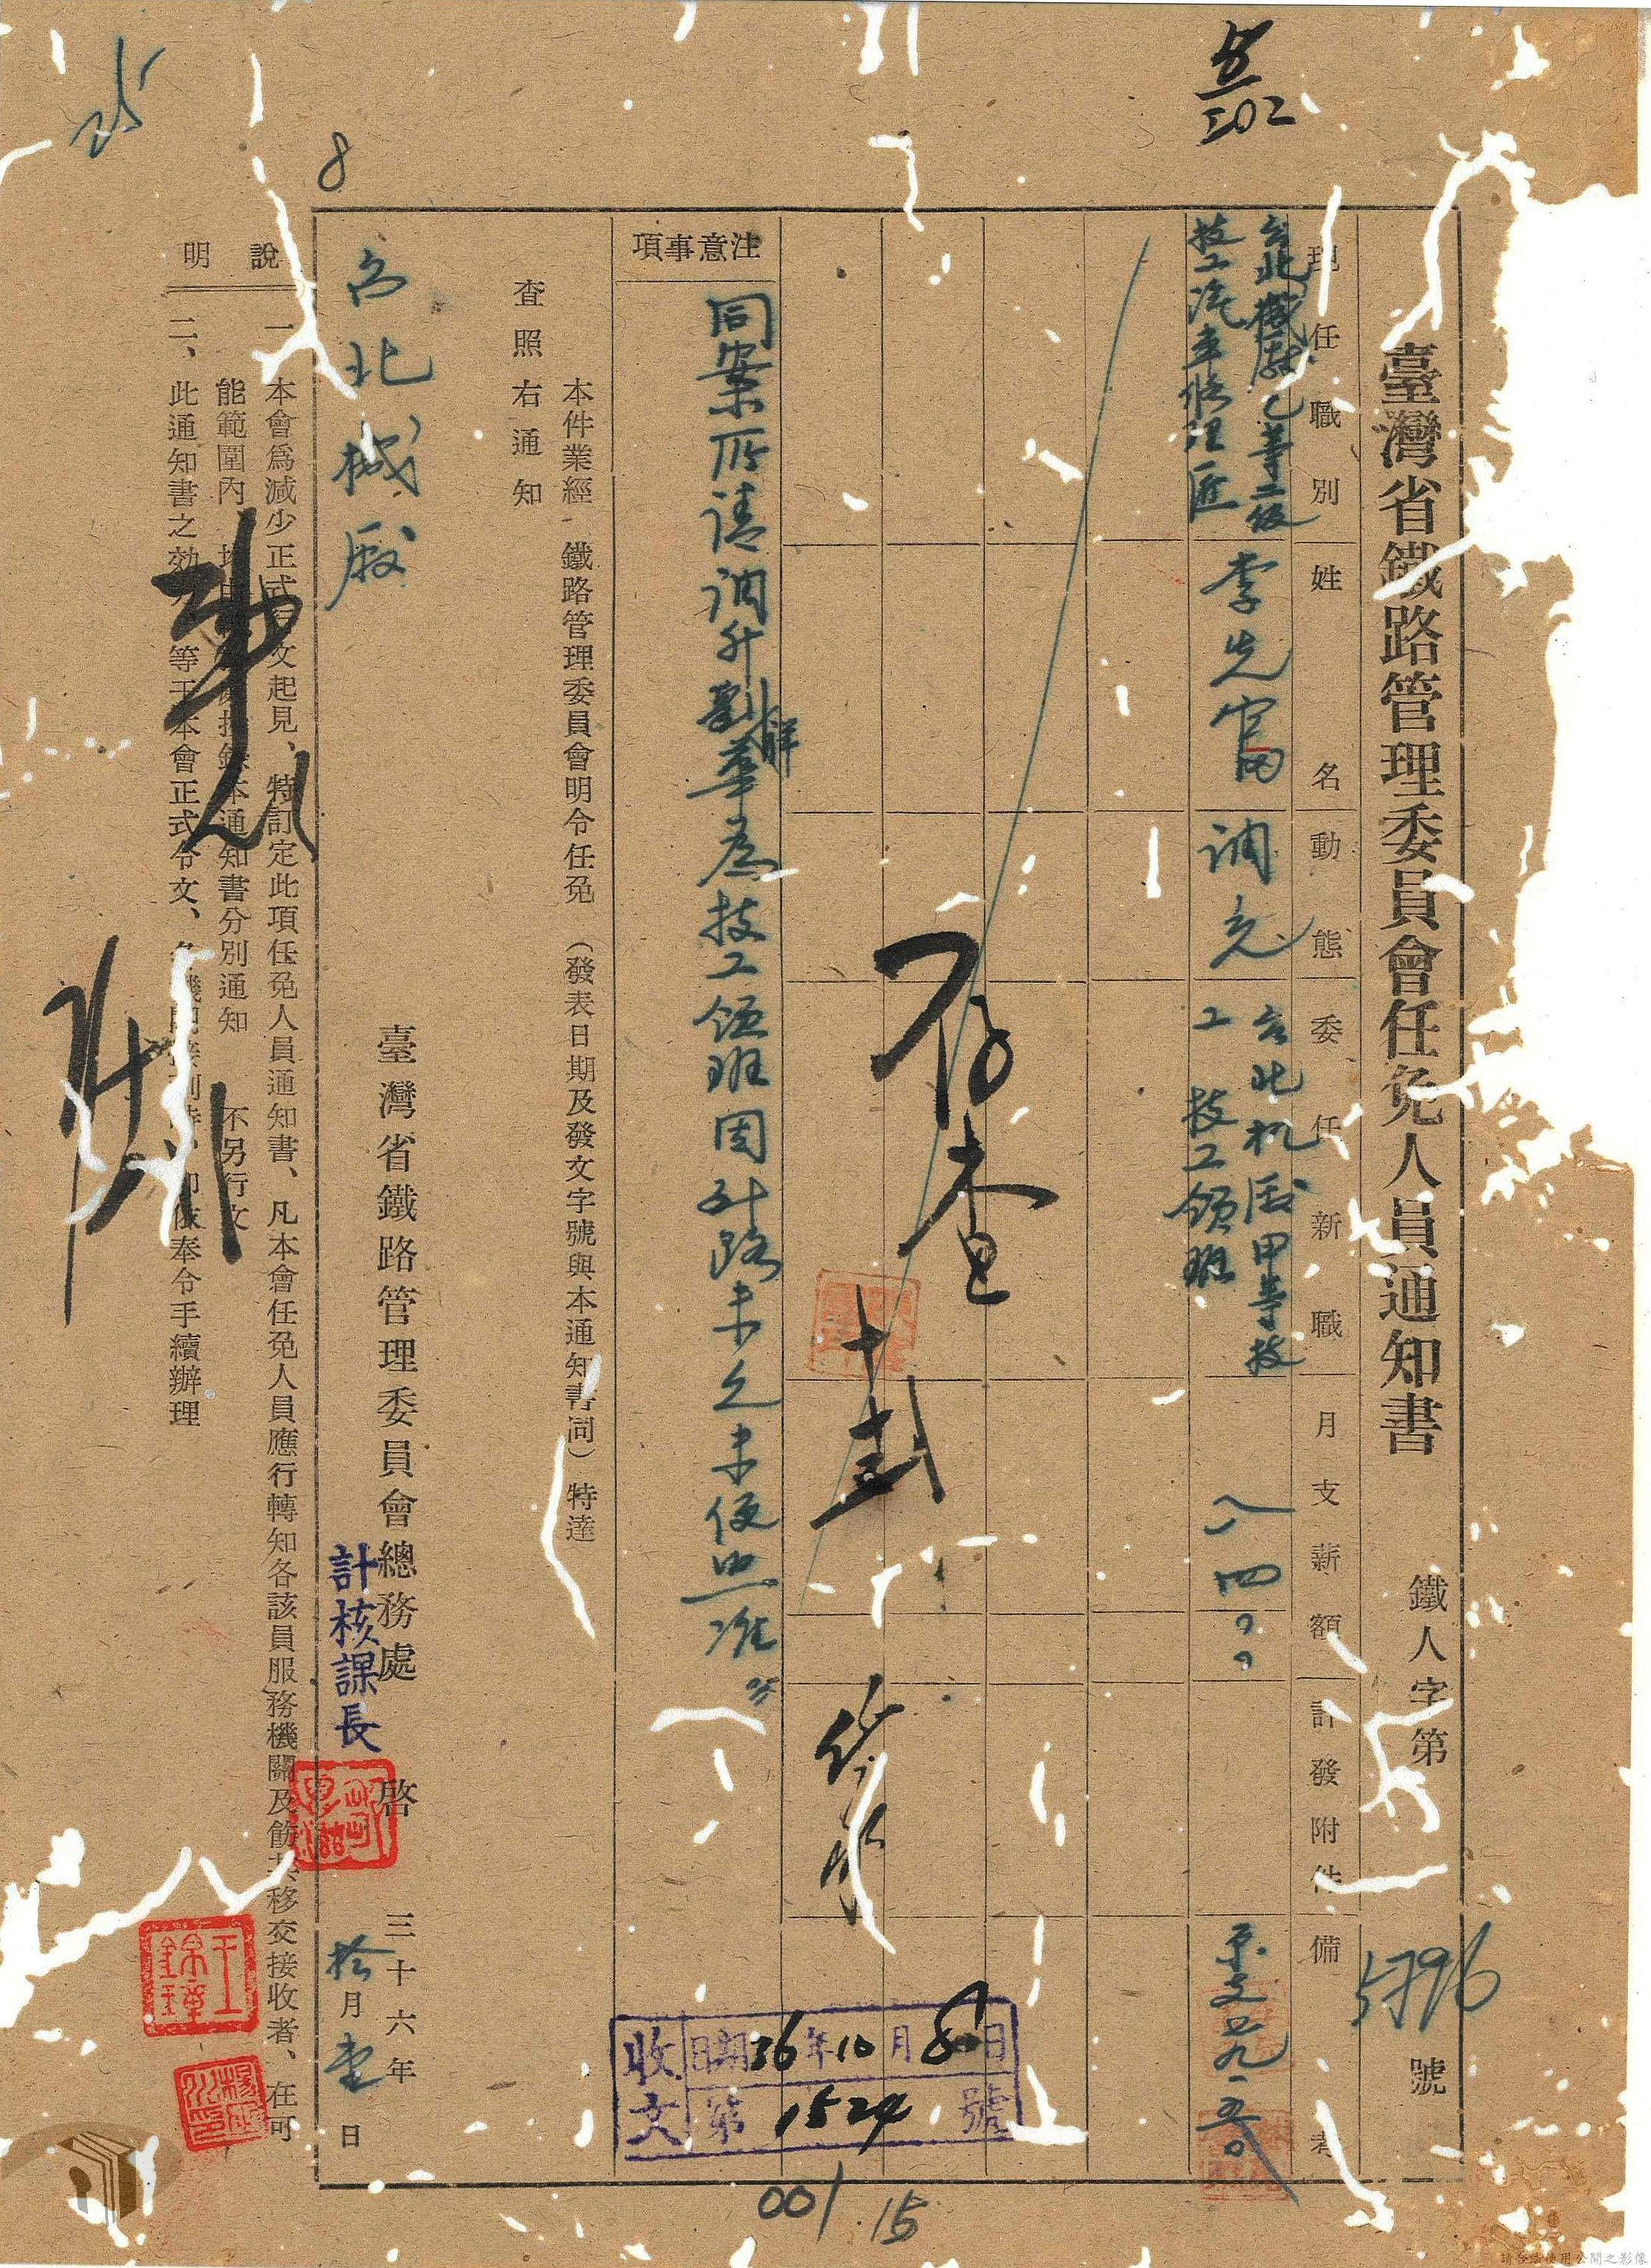 臺灣省鐵路管理委員會任免人員通知書
鐵人字第5796號
現任職別
姓名
動態
委任新職
月支薪額
計發附件
備考
台北機廠乙等二級
技工汽車修理匠
李先富
調充
台北机廠甲等技
工 技工領班
八四〇〇
原支七九.五〇
存查
注意事項
同案所請調升劉祥華為技工領班因到路未久未便照准
本件業經 鐵路管理委員會明令任免 (發表日期及發文字號與本通知書同) 特達
查照 右通知
台北機廠
臺灣省鐵路管理委員會總務處 啓
計核課長
三十六年
拾月壹日
說明
一、本會爲減少正式行文起見、特訂定此項任免人員通知書、凡本會任免人員應行轉知各該員服務機關及飭其移交接收者、在可
能範圍內 本通知書分別通知 不另行文
二、此通知書之効力等于本會正式令文、各機關接到時、即依奉令手續辦理
收文
日期36年10月8日
第1524號
王錦璋
25
8
202
001
15
請合法使用公開之影像